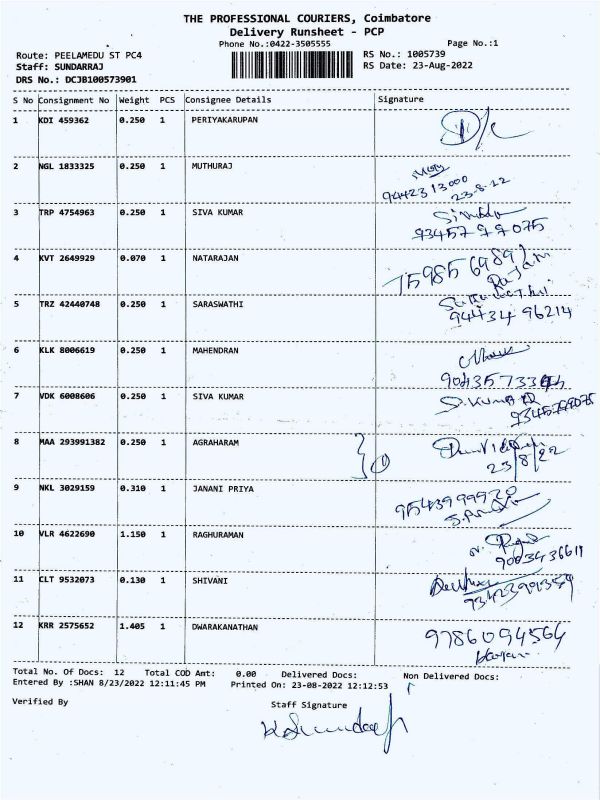 THE PROFESSIONAL COURIERS, Coimbatore
Delivery Runsheet - PCP
Phone No.:0422-3505555 Page No.:1
Route: PEELAMEDU ST PC4 RS No.: 1005739
Staff: SUNDARRAJ RS Date: 23-Aug-2022
DRS No.: DCJB100573901
S No Consignment No Weight PCS Consignee Details Signature
1 KDI 459362 0.250 1 PERIYAKARUPAN D/c
2 NGL 1833325 0.250 1 MUTHURAJ
9442313000
23.8.22
3 TRP 4754963 0.250 1 SIVA KUMAR
93457 99075
4 KVT 2649929 0.070 1 NATARAJAN
7598569891
Rajam
5 TRZ 42440748 0.250 1 SARASWATHI
94434 96214
6 KLK 8006619 0.250 1 MAHENDRAN
7 VDK 6008606 0.250 1 SIVA KUMAR S.KUMAR
8 MAA 293991382 0.250 1 AGRAHARAM
23/8/22
9 NKL 3029159 0.310 1 JANANI PRIYA 9543999920
10 VLR 4622690 1.150 1 RAGHURAMAN
9003436611
11 CLT 9532073 0.130 1 SHIVANI
9342399359
12 KRR 2575652 1.405 1 DWARAKANATHAN 9786094564
Total No. Of Docs: 12 Total COD Amt: 0.00 Delivered Docs: Non Delivered Docs:
Entered By :SHAN 8/23/2022 12:11:45 PM Printed On: 23-08-2022 12:12:53
Verified By Staff Signature